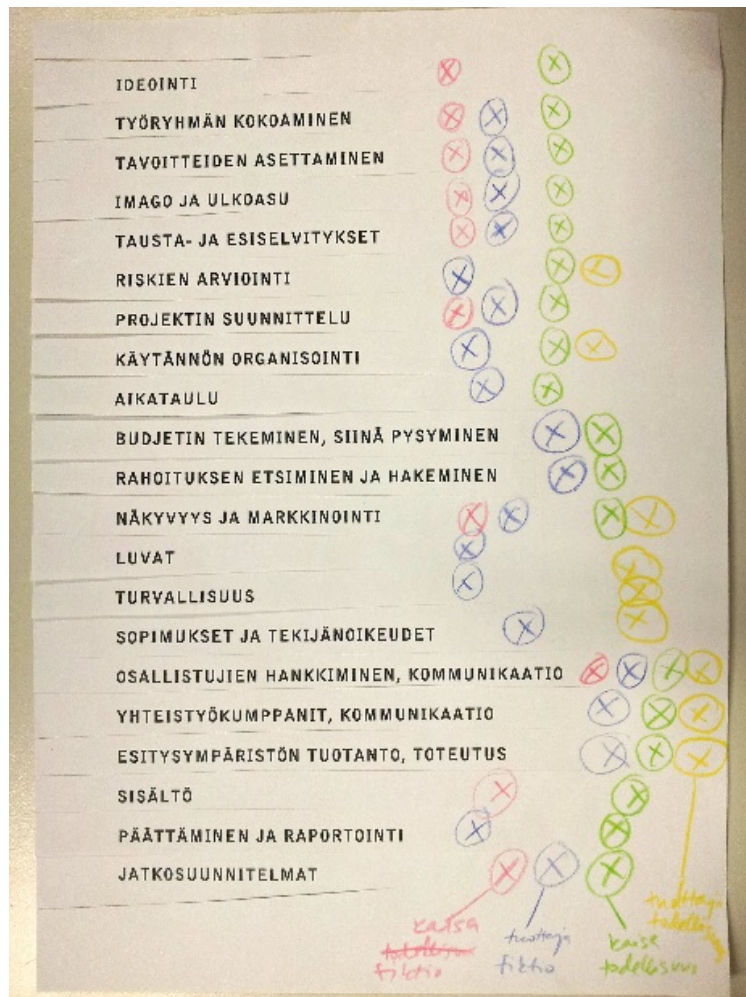 IDEOINTI
TYÖRYHMÄN KOKOAMINEN
TAVOITTEIDEN ASETTAMINEN
IMAGO JA ULKOASU
TAUSTA- JA ESISELVITYKSET
RISKIEN ARVIOINTI
PROJEKTIN SUUNNITTELU
KÄYTÄNNÖN ORGANISOINTI
AIKATAULU
BUDJETIN TEKEMINEN, SIINÄ PYSYMINEN
RAHOITUKSEN ETSIMINEN JA HAKEMINEN
NÄKYVYYS JA MARKKINOINTI
LUVAT
TURVALLISUUS
SOPIMUKSET JA TEKIJÄNOIKEUDET
OSALLISTUJIEN HANKKIMINEN, KOMMUNIKAATIO
YHTEISTYÖKUMPPANIT, KOMMUNIKAATIO
ESITYSYMPÄRISTÖN TUOTANTO, TOTEUTUS
SISÄLTÖ
PÄÄTTÄMINEN JA RAPORTOINTI
JATKOSUUNNITELMAT
kaisa
fiktio
tuottaja
fiktio
kaisa
todellisuus
tuottaja
todellisuus